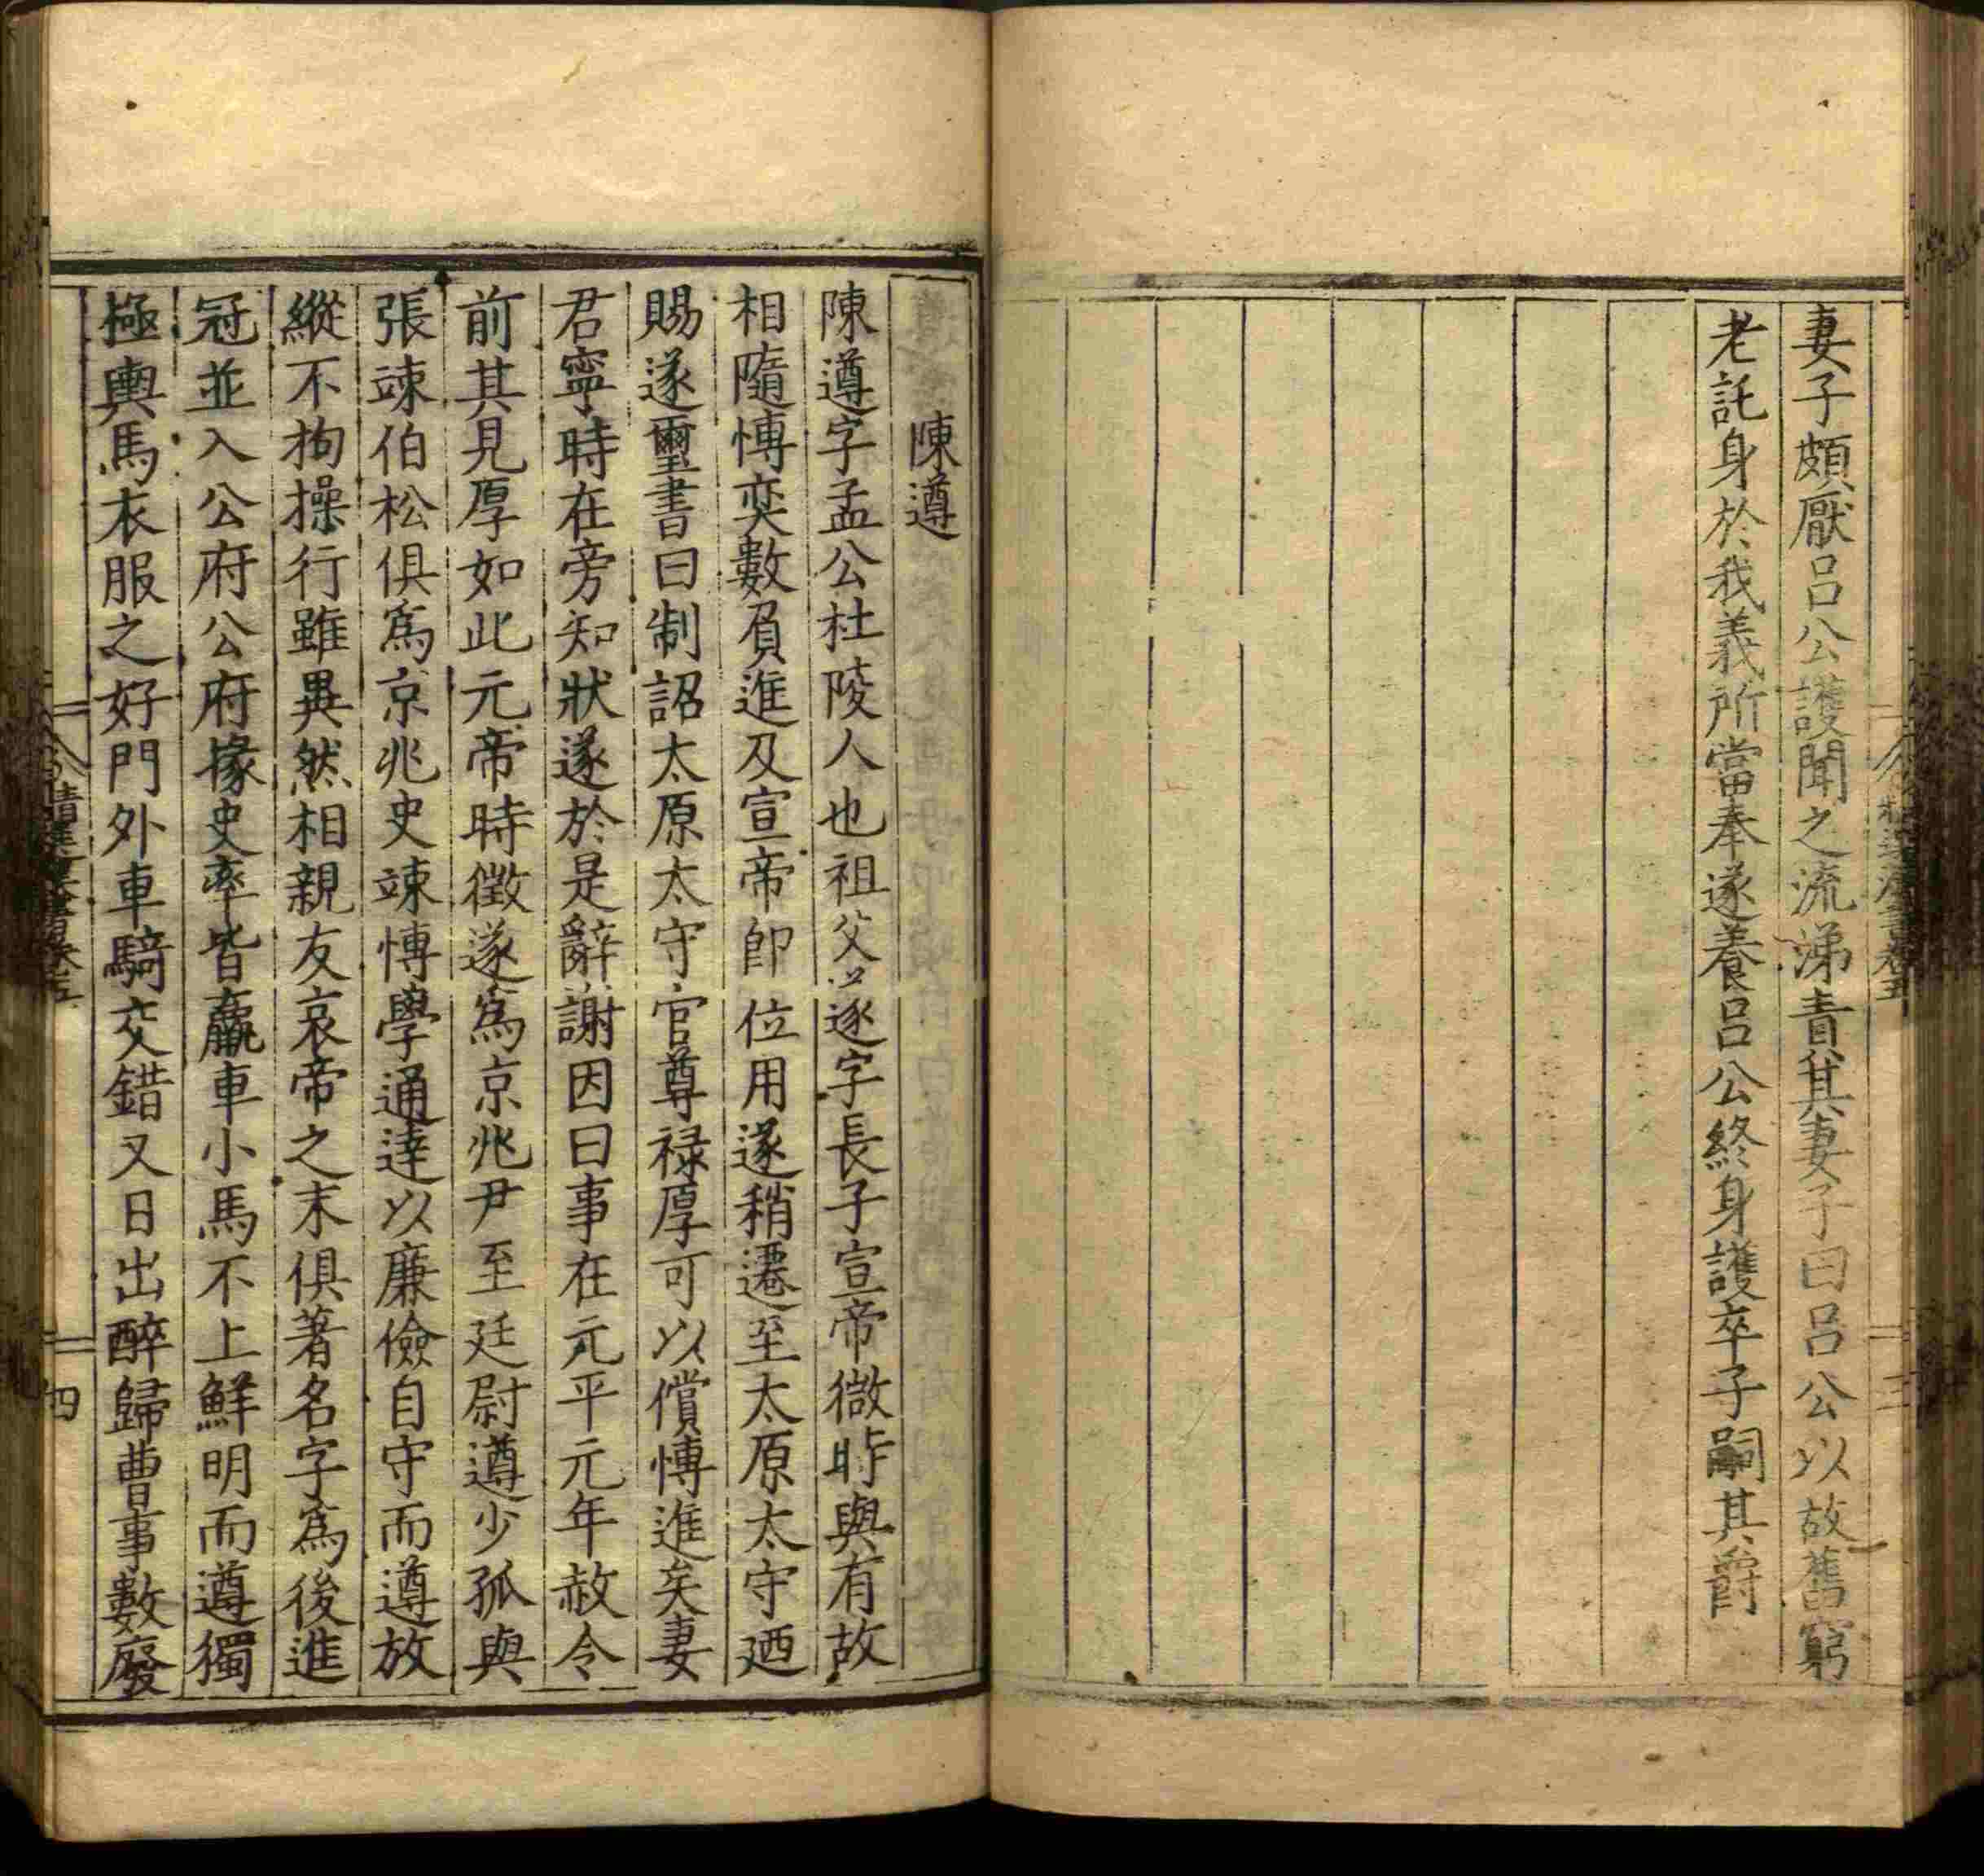 妻子頗厭呂公護聞之流涕責其妻子曰呂公以故舊窮
老託身於我義所當奉遂養呂公終身護卒子嗣其爵
陳遵
陳遵字孟公杜陵人也祖父遂字長子宣帝微時與有故
相隨愽奕數負進及宣帝即位用遂稍遷至太原太守廼
賜遂璽書曰制詔太原太守官尊禄厚可以償愽進矣妻
君寧時在旁知狀遂於是辭謝因曰事在元平元年赦令
前其見厚如此元帝時徵遂為京兆尹至廷尉遵少孤與
張竦伯松俱為京兆史竦愽學通達以廉儉自守而遵放
縱不拘操行雖異然相親友哀帝之末俱著名字為後進
冠並入公府公府掾史率皆羸車小馬不上鮮明而遵獨
極輿馬衣服之好門外車騎交錯又日出醉歸曹事數廢
四